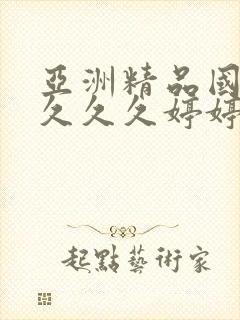 亞洲精品國
久久久婷婷
起點藝術家